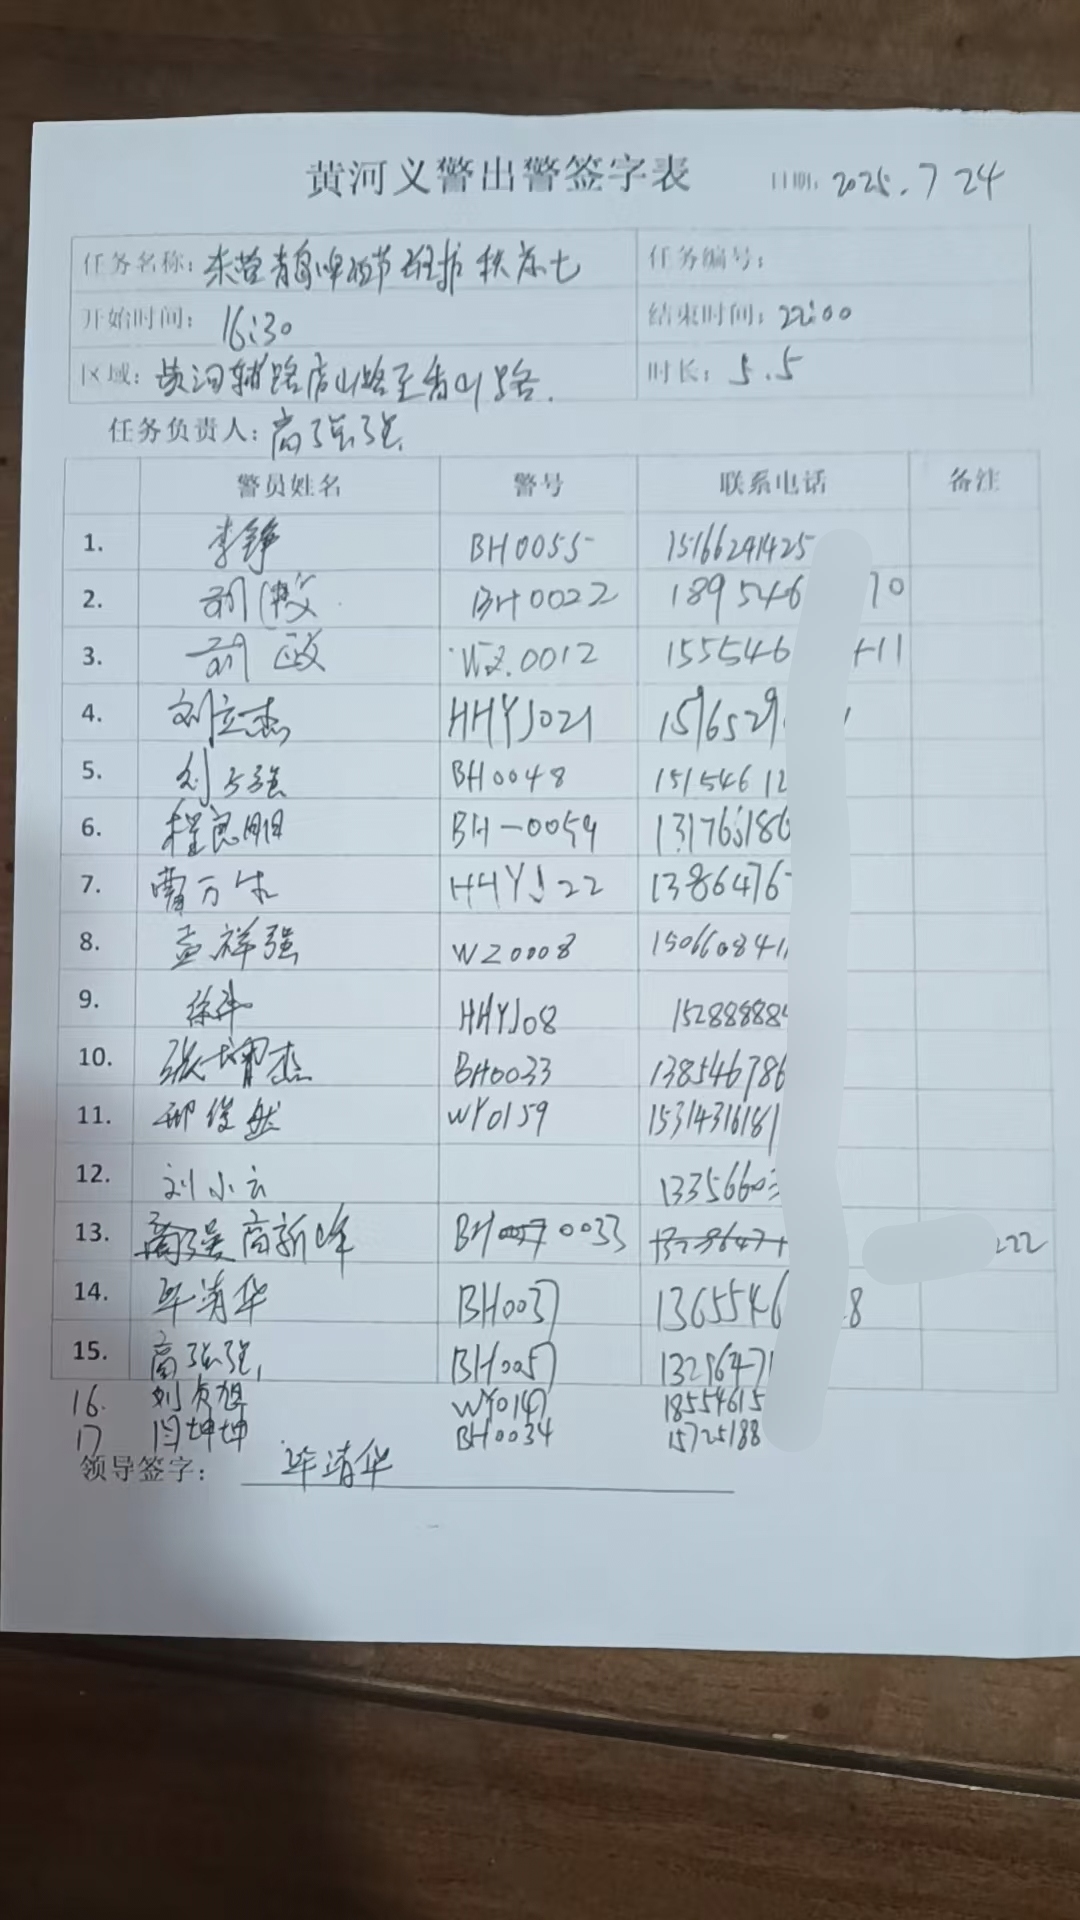 黄河义警出警签字表 日期: 2025.7 24
任务名称: 东营青岛啤酒节维护秩序七 任务编号:
开始时间: 16:30 结束时间: 22:00
区域: 黄河辅路庐山路至香山路. 时长: 5.5
任务负责人: 高强强
警员姓名 警号 联系电话 备注
1. 李铮 BH0055 15166241425
2. BH0022 189546 70
3. 政 WZ.0012 155546 +11
4. 刘立杰 HHYJ021 1596529
5. 刘 强 BH0048 151546 12
6. 程良朋 BH-0059 131765186
7. 曹万 HHYJ22 1386476
8. 孟祥强 WZ0008 150660841
9. 徐 HHYJ08 15288888
10. 张坤杰 BH0033 138546786
11. 邢俊然 WY0159 1531431618
12. 刘小云 1335660
13. 高新峰 BH 0033 222
14. 毕清华 BH0037 1365546 8
15. 高强强 BH0057 1329647
16. 刘贞旭 WY0147 18554615
17 闫坤坤 BH0034 15725188
领导签字: 毕清华